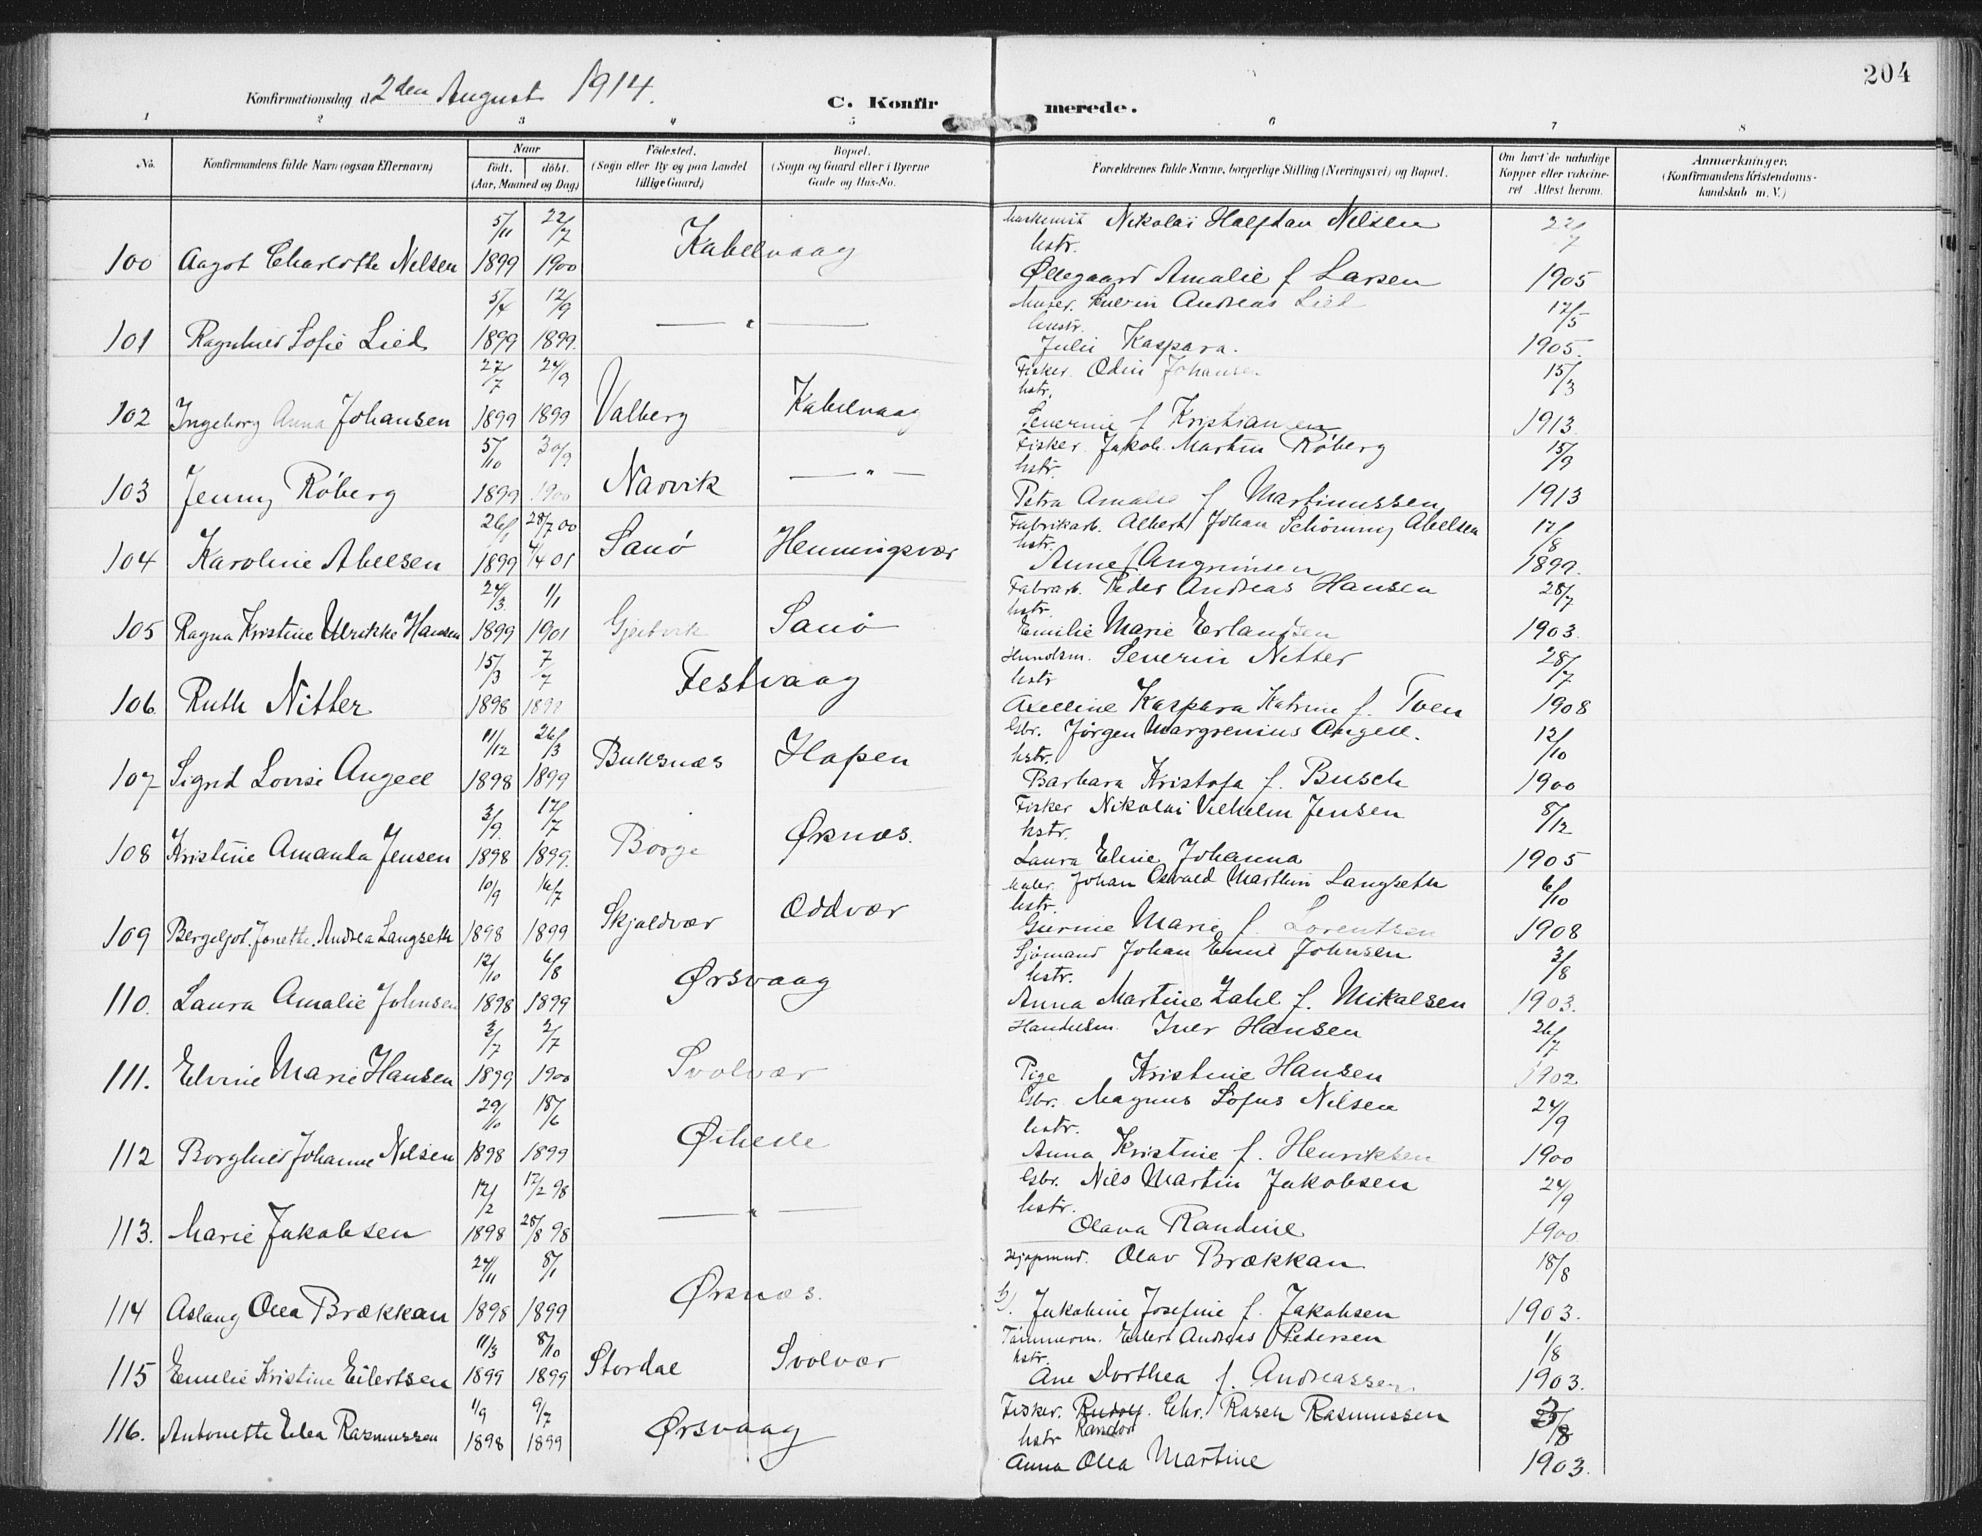 204
Konfirmationsdag d. 2den August 1914.
C. Konfirmerede.
1 2 3 4 5 6 7 8
No. Konfirmandens fulde Navn (ogsaa Efternavn) Naar født. døbt. (Aar, Maaned og Dag) Fødested. (Sogn eller By og paa Landet tillige Gaard) Bopæl. (Sogn og Gaard eller i Byerne Gade og Hus-No. Forældrenes fulde Navne, borgerlige Stilling (Næringsvei) og Bopæl. Om havt de naturlige Kopper eller vakcineret Attest herom. Anmærkninger. (Konfirmandens Kristendomskundskab m. V.)
5/11 22/7 Maskinist Nikolai Halfdan Nilsen 22/7
100 Aagot Charlotte Nilsen 1899 1900 Kabelvaag hstr. Øllegaard Amalie f Larsen 1905
5/4 12/9 Severin Andreas Lied 12/5
101 Ragnhild Sofie Lied 1899 1899. — " — hustr. Julie Kaspara. 1905.
27/7 24/9 Fisker. Odin Johansen 15/3
102 Ingeborg Anna Johansen 1899 1899 Valberg Kabelvaag hstr. Severine f Kristiansen 1913.
5/10 30/9 Fisker. Jakob Martin Røberg 15/9
103 Jenny Røberg 1899 1900 Narvik — " — hstr. Petra Amalie f Martinussen 1913
26/1 28/7 00 Fabrikarb. Albert Johan Schønning Abelsen 12/8
104 Karoline Abelsen 1899 4/4 01 Sanø Henningsvær hstr. Anne f Angrimsen 1899.
24/3. 1/1 Fabrarb. Peder Andreas Hansen 28/7
105 Ragna Kristine Ulrikke Hansen 1899 1901 Gjeitvik Sanø hstr. Emilie Marie Erlandsen 1903.
15/3 7/7 Handsm. Severin Nitter 28/7
106. Ruth Nitter 1898 1899 Festvaag hstr Aveline Kaspara Katrine f. Tven 1908
11/12 26/3 Gbr. Jørgen Margrenius Angell. 12/10
107 Sigrid Lovise Angell 1898 1899 Buksnæs Hopen hstr. Barbara Kristofa f. Busch 1900
3/9. 17/7 Fisker Nikolai Vilhelm Jensen 8/12
108 Kristine Amanda Jensen 1898 1899. Borge Ørsnæs. hstr. Laura Eline Johanna 1905
10/9 16/7 Maler. Johan Osvald Marthin Langseth 6/10
109 Bergeljot. Jonette. Andrea Langseth 1898 1899 Skjoldvær Oddvær hstr. Gurine Marie f. Lorentsen 1908
12/10 6/8 Sjømand Johan Emil Johnsen 3/8
110. Laura Amalie Johnsen 1898 1899 Ørsvaag hstr. Anna Martine Zahl f. Mikalsen 1903.
3/7 2/7 Handelsm. Iver Hansen 26/7
111. Elvine Marie Hansen 1899 1900 Svolvær Pige Kristine Hansen 1902
29/10 18/6 Gbr. Magnus Sofus Nilsen 24/9
112 Borghild Johanne Nilsen 1898 1899 Øihelle hstr. Anna Kristine f. Henriksen 1900
12/2 12/2 98 Gbr. Nils Martin Jakobsen 24/9
113. Marie Jakobsen 1898 28/8 98 — " — hstr. Olava Randine 1900
24/11 8/1 Kjøpmnd. Olav Brækkan 18/8
114 Aslaug Olea Brækkan 1898 1899 Ørsnæs. h/. Jakobine Josefine f. Jakobsen 1903.
11/3 8/10 Tømmerm. Eilert Andreas Pedersen 1/8
115 Emelie Kristine Eilertsen 1899 1899 Stordal Svolvær hstr. Ane Dorthea f. Andreassen 1903.
1/9 9/7 Fisker. Rudolf. Chr. Rasch Rasmussen 3/8
116. Antonette Elea Rasmussen 1898 1899 Ørsvaag hstr Randor Anna Olea Martine 1903.